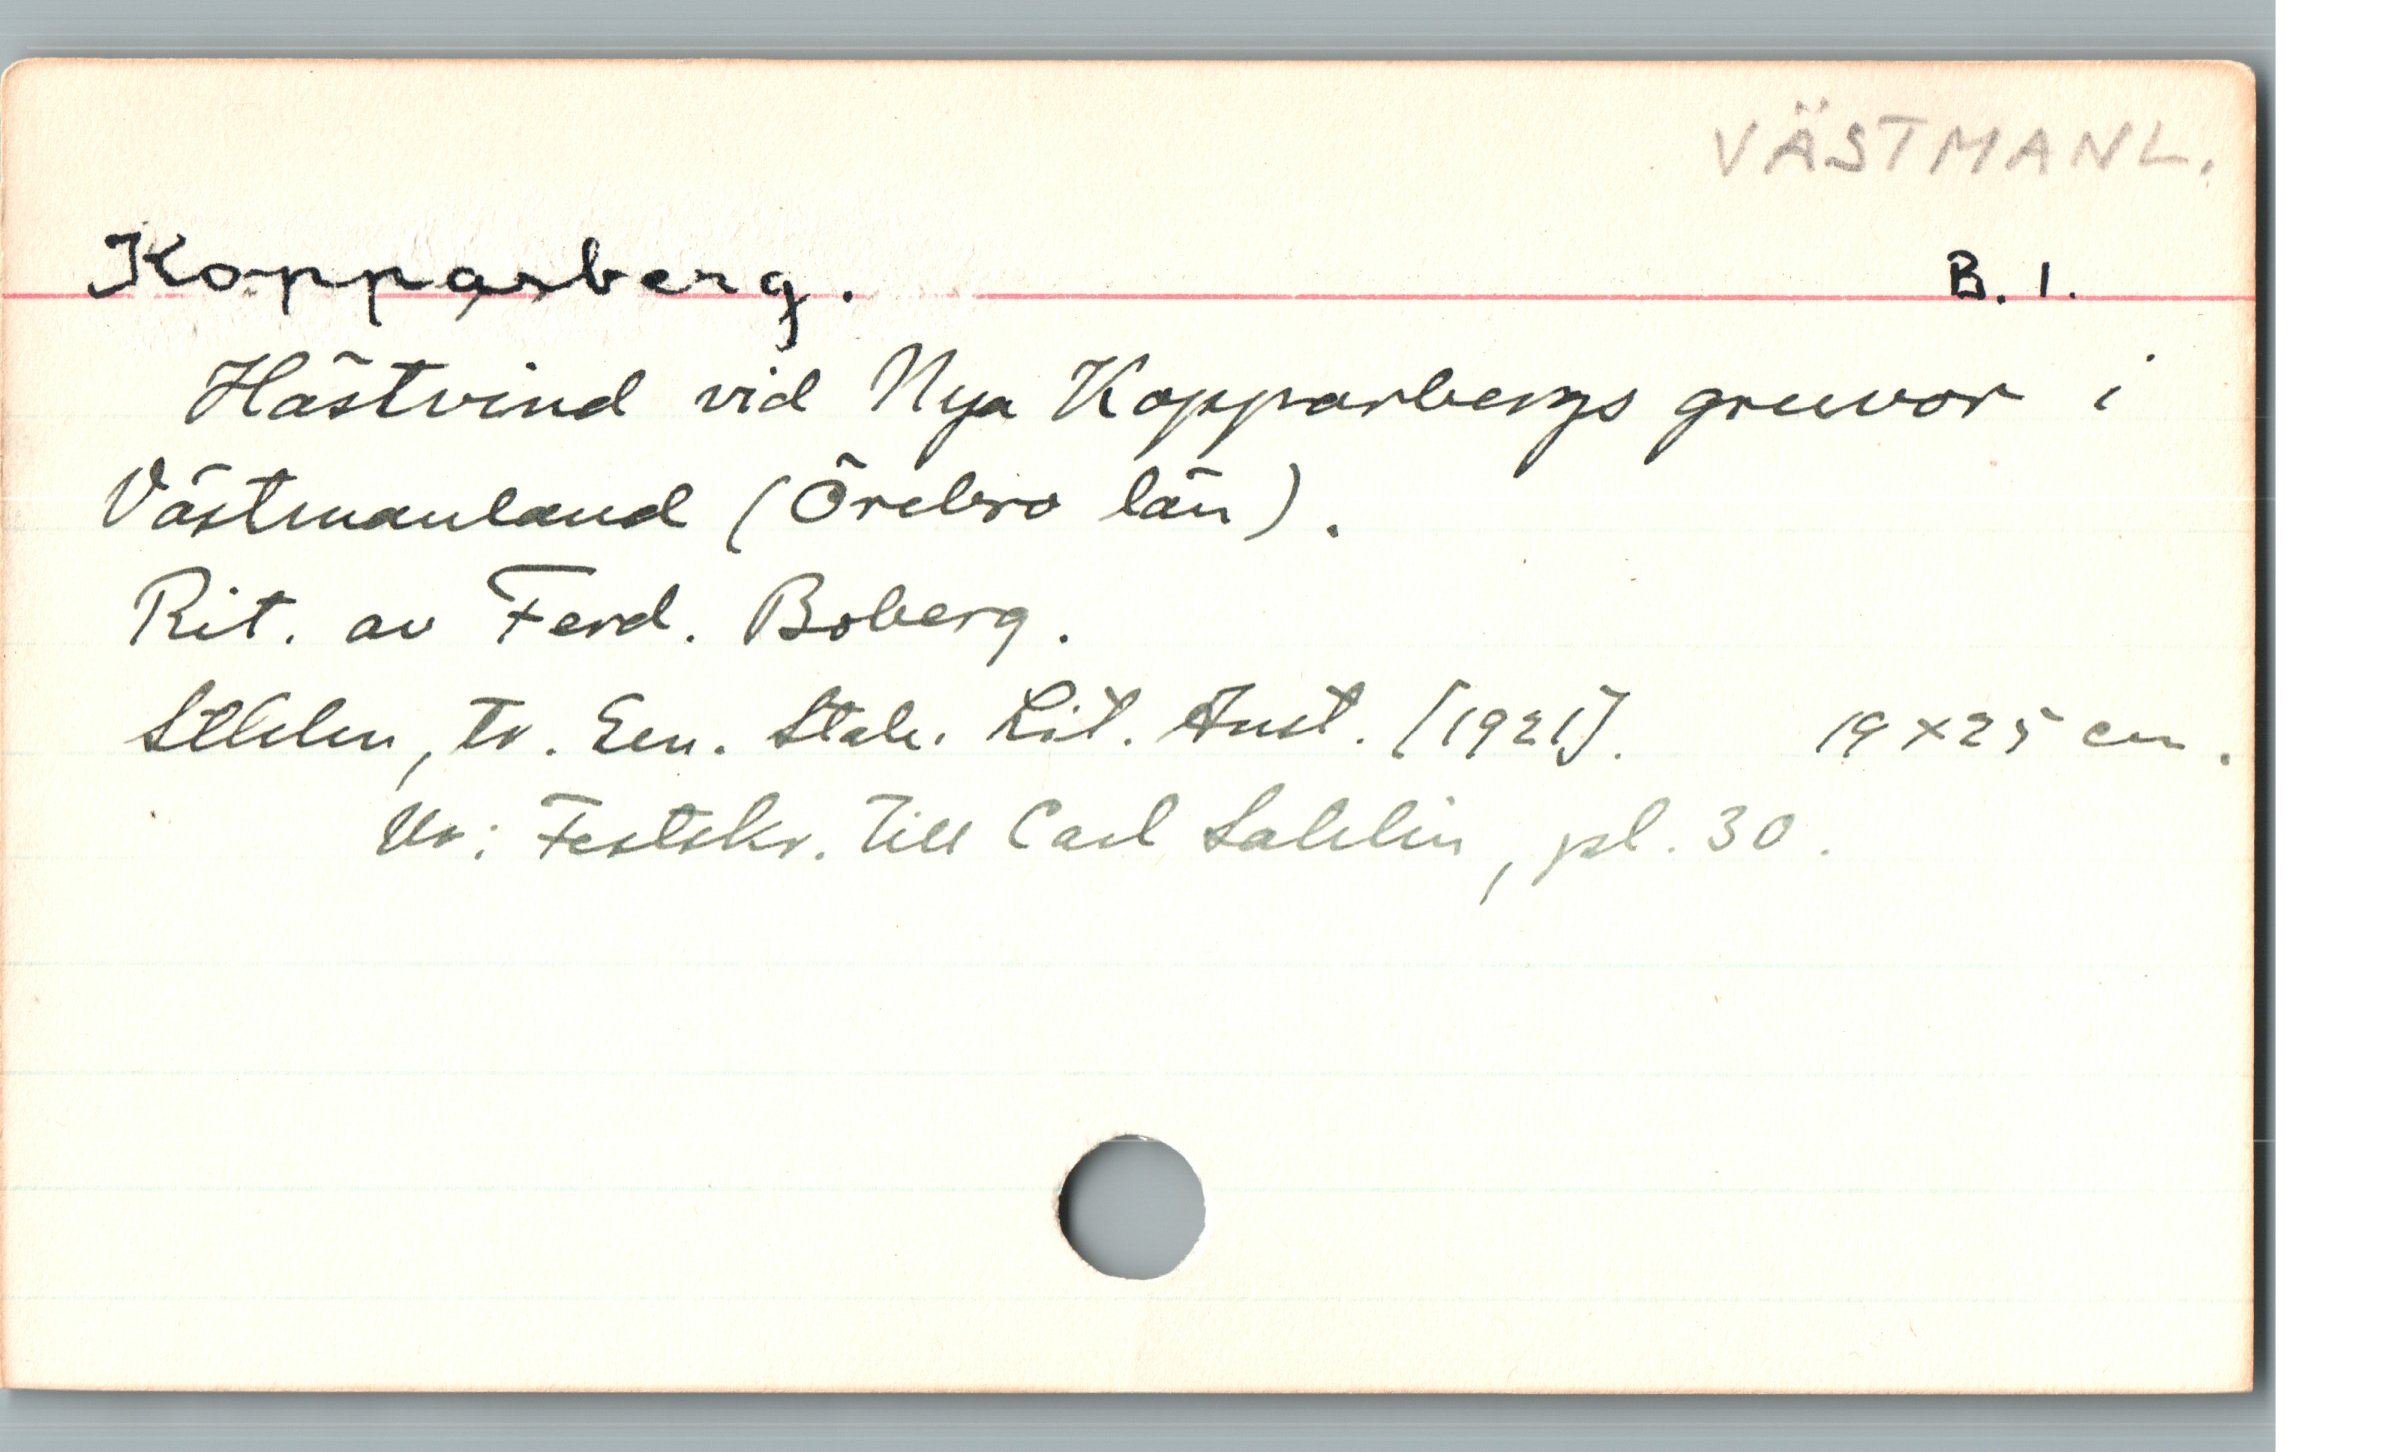 VÄSTMANL.
Kopparberg. B. 1.
Hästvind vid Nya Kopparbergs gruvor i
Västmanland (Örebro län).
Rit. av Ferd. Boberg.
Sthlm, tr. Gen. Stab. Lit. Anst. [1921]. 19 x 25 cm.
Ur: Festskr. till Carl Sahlin, pl. 30.